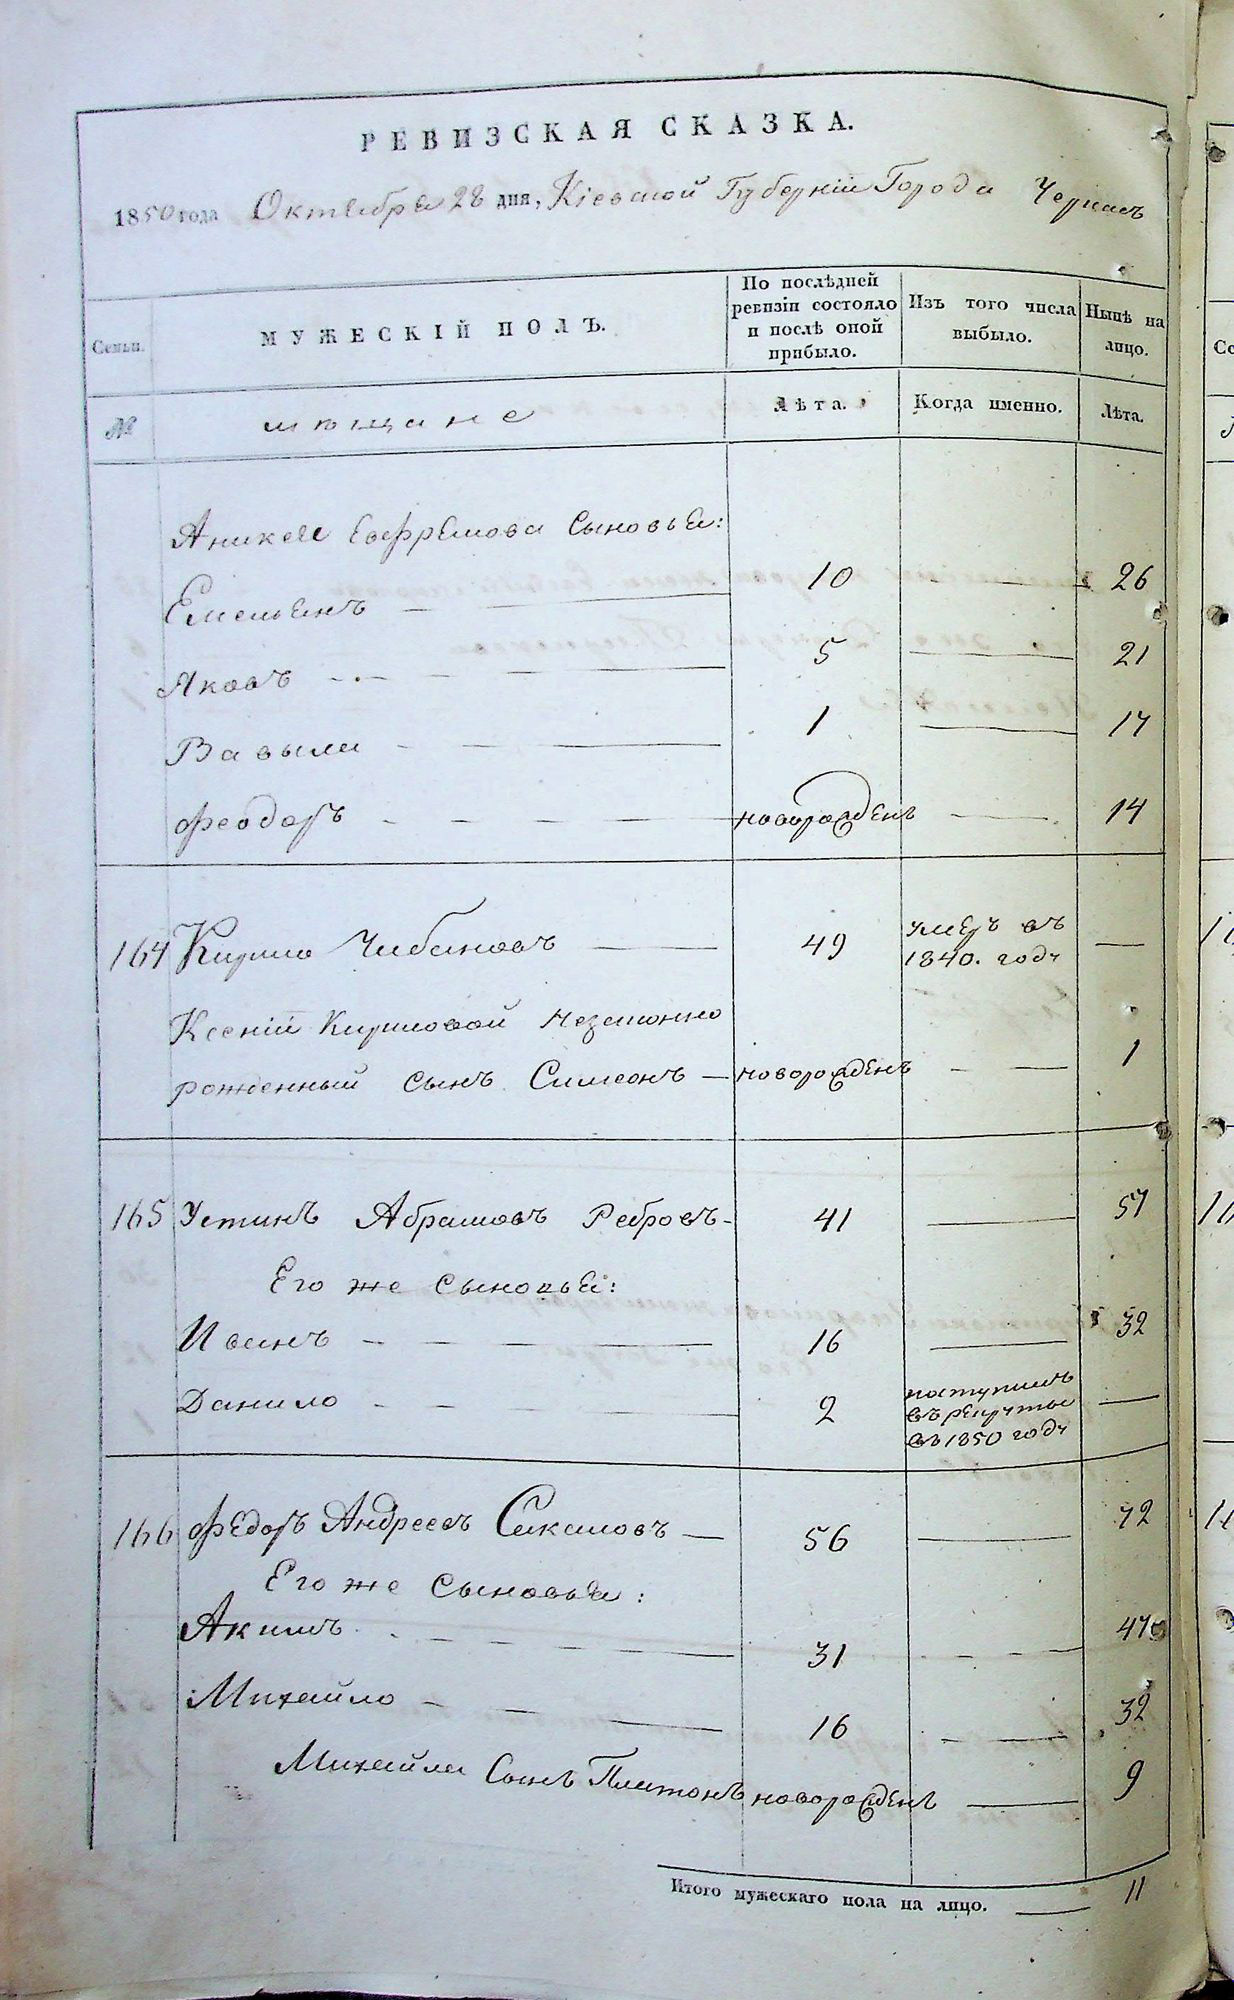 РЕВИЗСКАЯ СКАЗКА.
1850 года Октября 28 дня, Кіевской Губерніи Города Черкасъ
Семьи.
МУЖЕСКІЙ ПОЛЪ.
По послѣдней ревизіи состояло и послѣ оной прибыло.
Изъ того числа выбыло.
Нынѣ на лицо.
№ мѣщане Лѣта. Когда именно. Лѣта.
Аникея Евфремова сыновья:
Емельянъ 10 26
Яковъ 5 21
Вавыла 1 17
Феодоръ новорожденъ 14
164 Кирило Чибановъ 49 умеръ въ 1840. году
Ксеніи Кириловой незаконно
рожденный сынъ Симеонъ новорожденъ 1
165 Устинъ Абрамовъ Ребровъ 41 57
Его же сыновья:
Иванъ 16 32
Данило 2 поступилъ въ рекруты въ 1850 году
166 Федоръ Андреевъ Сакаловъ 56 72
Его же сыновья:
Акимъ 31 47
Михайло 16 32
Михайла сынъ Платонъ новорожденъ 9
Итого мужескаго пола на лицо. 11